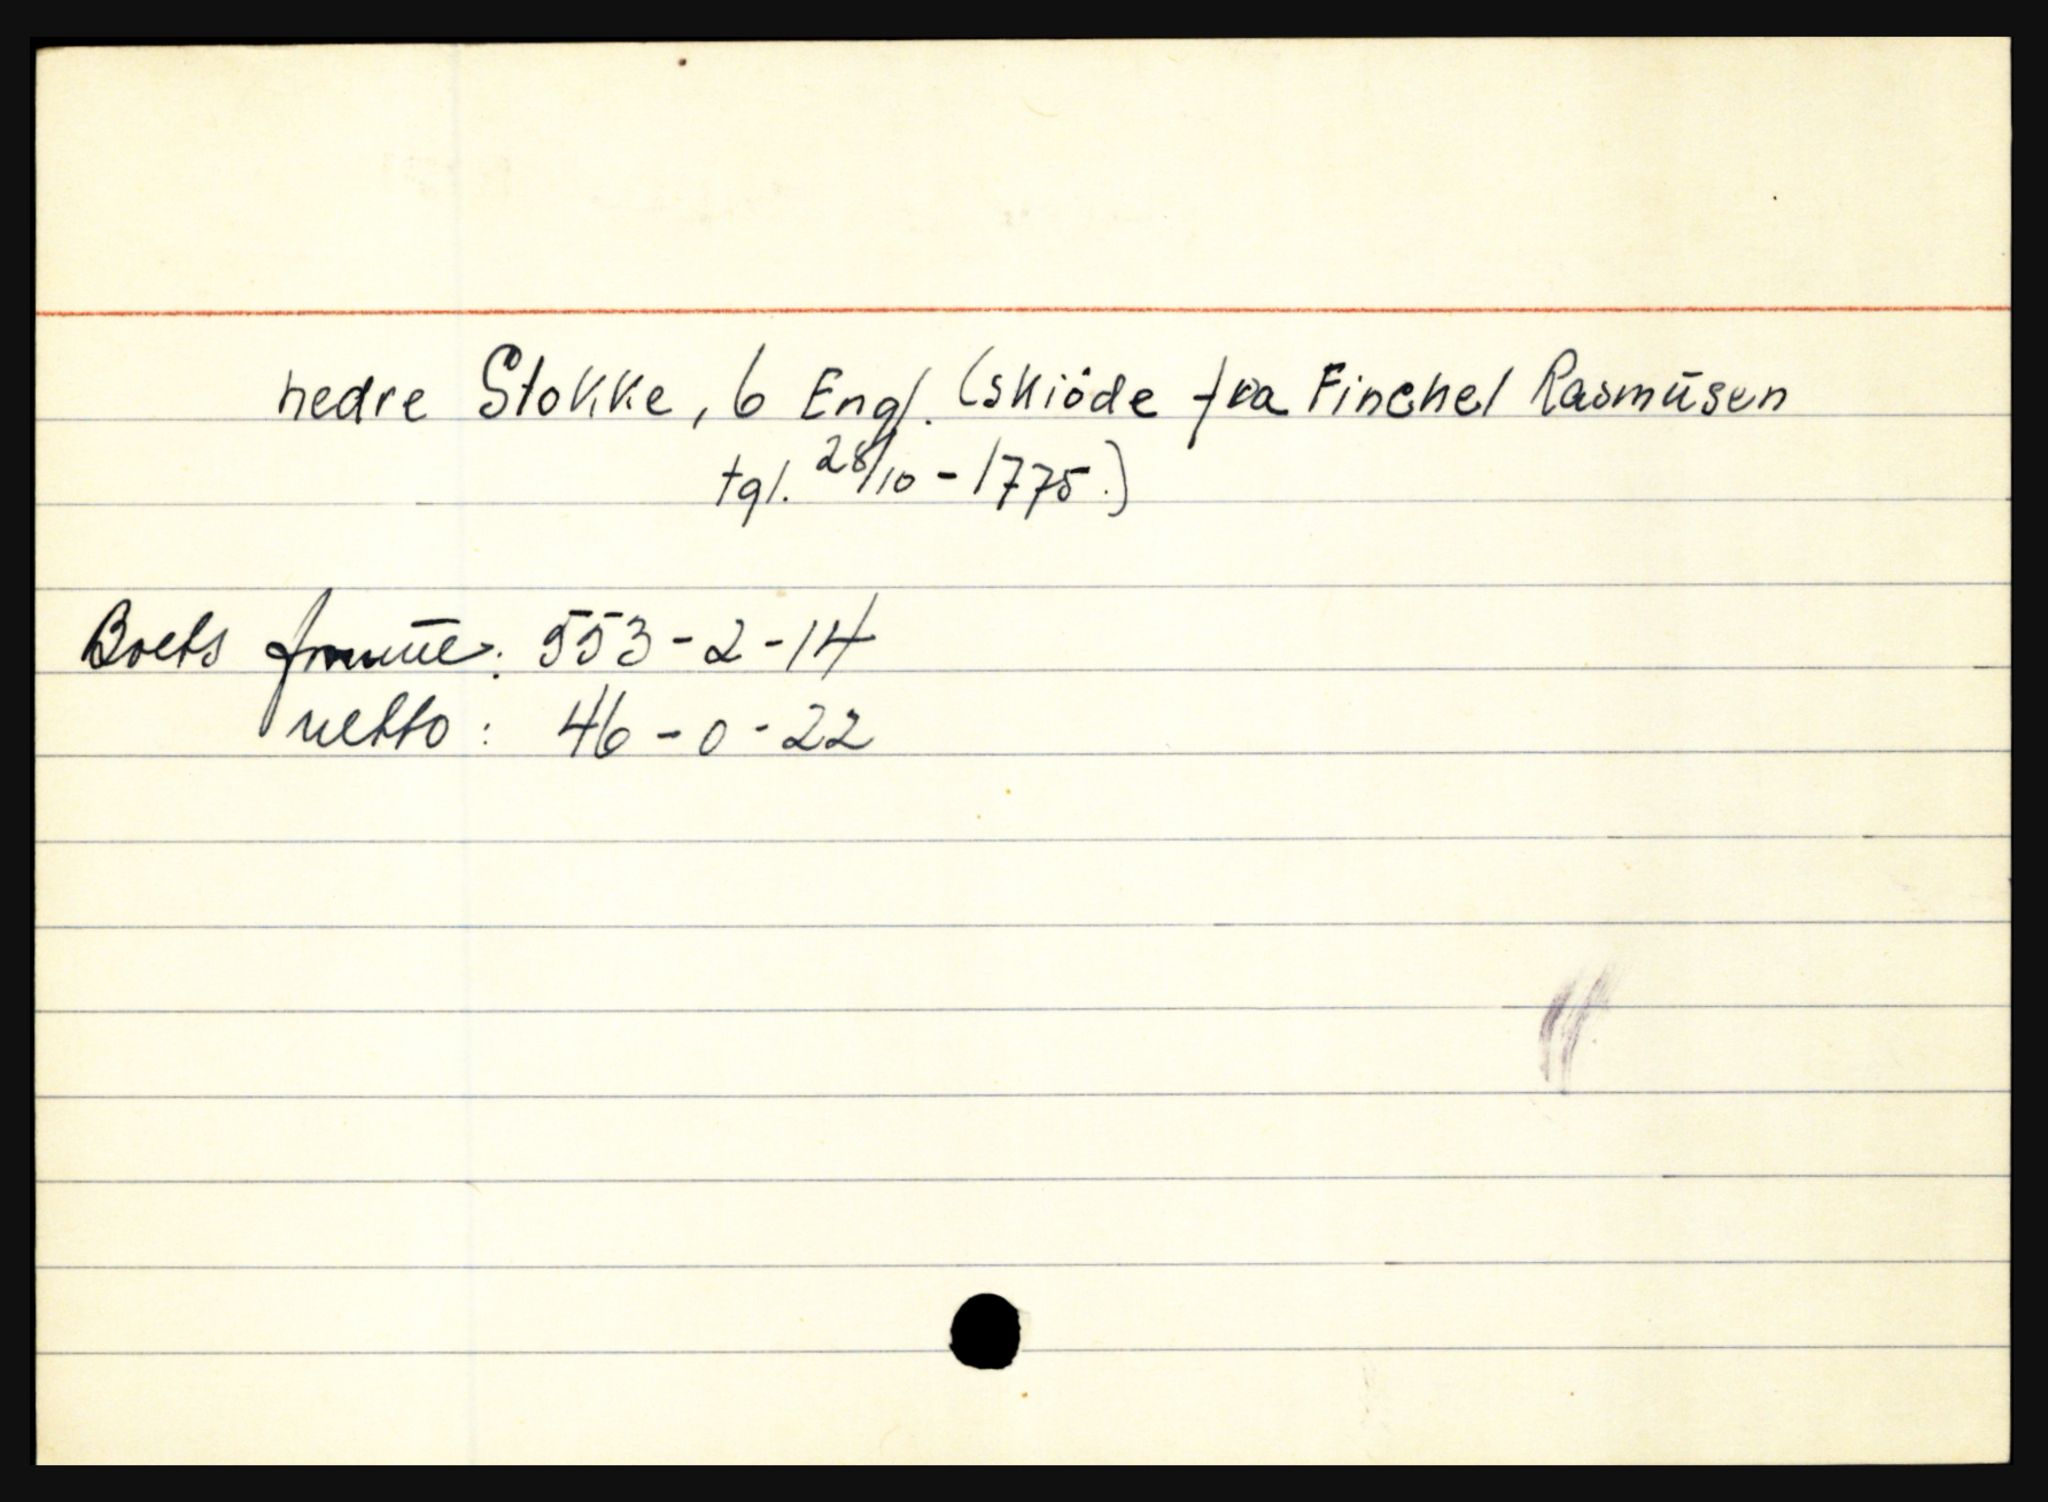 nedre Stokke, 6 Engl. (skiöde fra Finchel Rasmüsen
tgl. 28/10 - 1775.)
Boets :  553 - 2 - 14
netto : 46 - 0 - 22